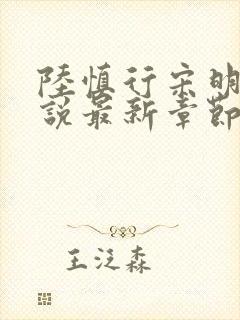 陸慎行宋明
說最新章節
王泛森